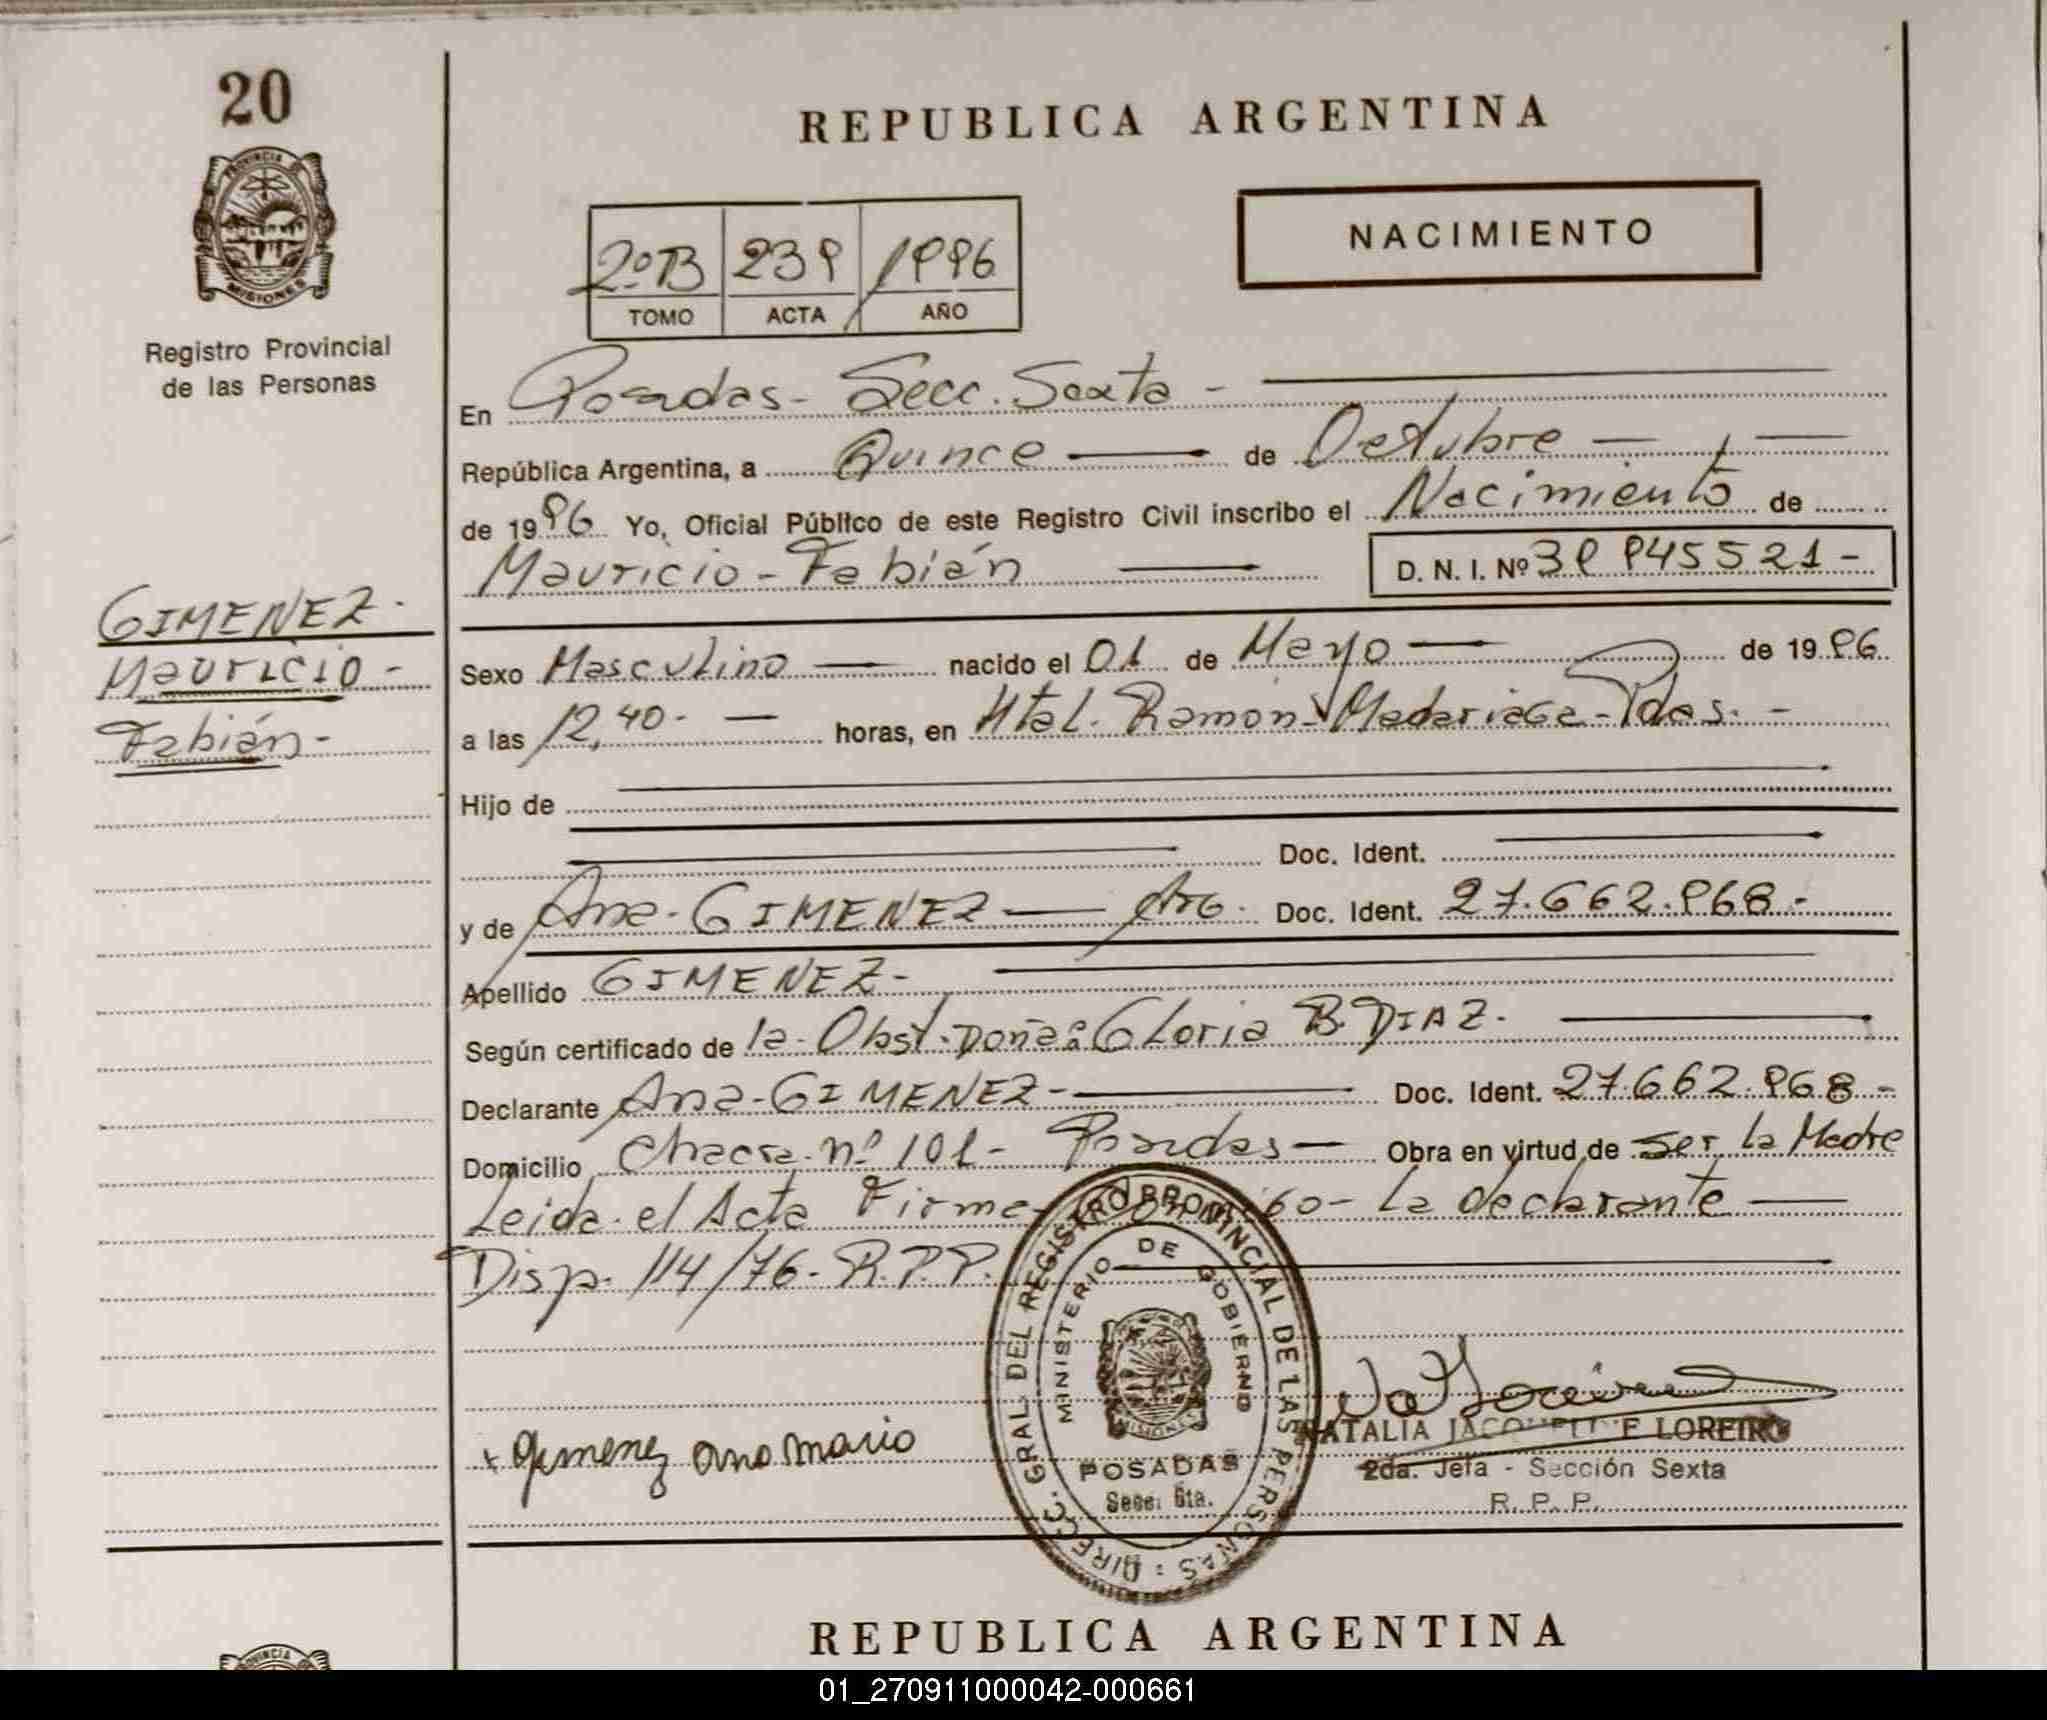 20
PROVINCIA DE
MISIONES
Registro Provincial
de las Personas
REPUBLICA ARGENTINA
NACIMIENTO
2º B 239 1996
TOMO ACTA AÑO
En Posadas - Secc. Sexta -
República Argentina, a Quince de Octubre
de 1996 Yo, Oficial Público de este Registro Civil inscribo el Nacimiento de
Mauricio - Fabián D. N. I. Nº 39 945521 -
GIMENEZ -
Mauricio -
Fabián -
Sexo Masculino nacido el 01 de Mayo de 1996
a las 12,40 - horas, en Htal. Ramón Madariaga - Pdas. -
Hijo de
Doc. Ident.
y de Ana - GIMENEZ Arg. Doc. Ident. 27.662.968.-
Apellido GIMENEZ -
Según certificado de la Obst. Doña: Gloria B. DIAZ.
Declarante Ana - GIMENEZ - Doc. Ident. 27.662.968 -
Domicilio Chacra nº 101 - Posadas - Obra en virtud de ser la Madre
Leida el Acta Firma - la declarante
Disp. 114/76 - R.P.P.
DIREC. GRAL DEL REGISTRO PROVINCIAL DE LAS PERSONAS
MINISTERIO DE GOBIERNO
MISIONES
POSADAS
Secc. 6ta.
Gimenez ana maria
NATALIA JACQUELINE LOREIRO
2da. Jefa - Sección Sexta
R. P. P.
REPUBLICA ARGENTINA
PROVINCIA
01_270911000042-000661